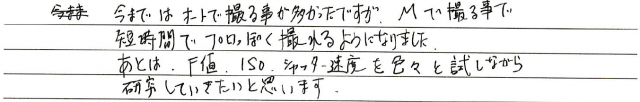 今までは オートで撮る事が多かったですが、Mで撮る事で
短時間でプロっぽく撮れるようになりました。
あとは、F値、ISO、シャッター速度を色々と試しながら
研究していきたいと思います。